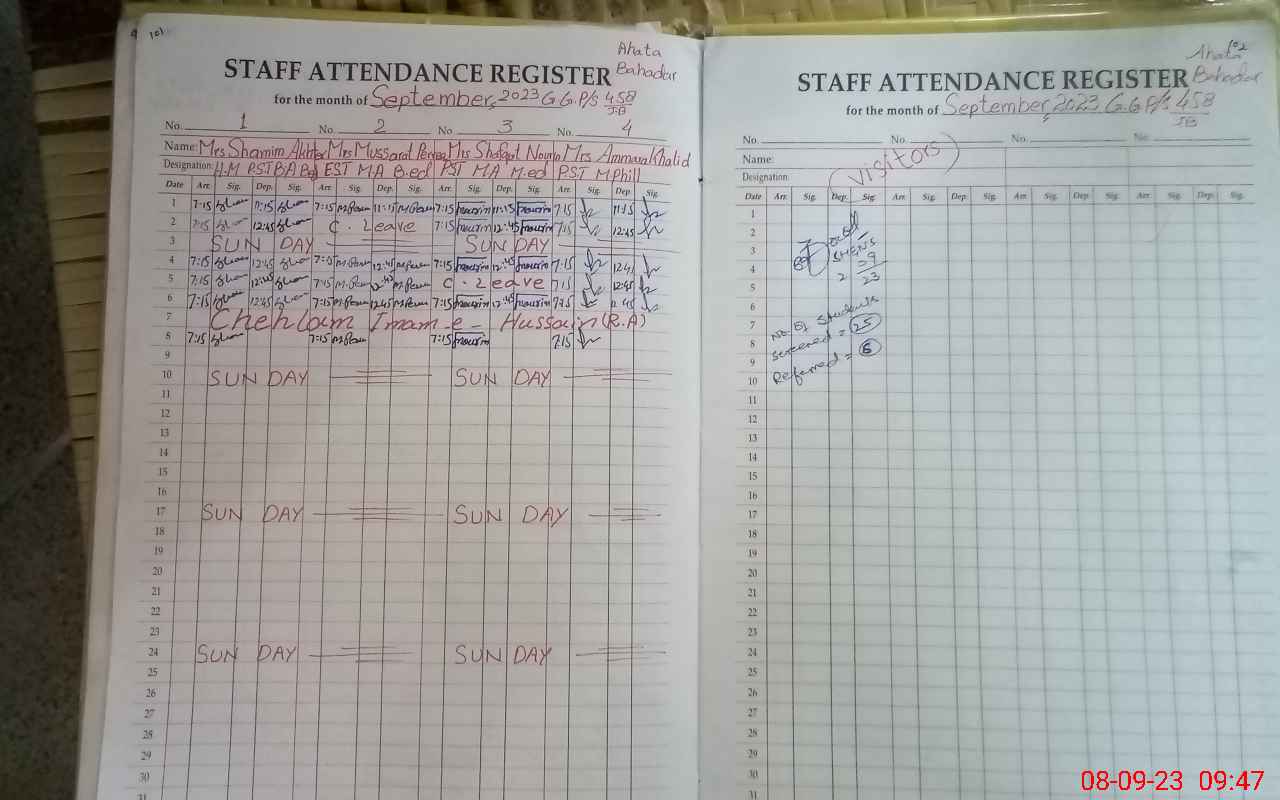 101
Ahata
Bahadar
STAFF ATTENDANCE REGISTER
for the month of September, 2023 G.G.P/S 458
JB
No. 1 No. 2 No. 3 No. 4
Name: Mrs Shamim Akhtar Mrs Mussarat Mrs Shafqat Mrs Ammara Khalid
Designation: H.M PST B.A B.ed EST M.A B.ed PST M A M.ed PST M.Phill
Date Arr. Sig. Dep. Sig. Arr. Sig. Dep. Sig. Arr. Sig. Dep. Sig. Arr. Sig. Dep. Sig.
1 7:15 11:15 7:15 11:15 7:15 nourin 11:15 nourin 7:15 11:15
2 7:15 12:45 C. Leave 7:15 nourin 12:45 nourin 7:15 12:45
3 SUN DAY SUN DAY
4 7:15 12:45 7:15 12:45 7:15 nourin 12:45 nourin 7:15
5 7:15 12:45 7:15 12:45 C. Leave 7:15 12:45
6 7:15 12:45 7:15 12:45 7:15 nourin 12:45 nourin 7:15 12:45
7 Chehlam Imam-e- Hussain (R.A)
8 7:15 7:15 7:15 nourin 7:15
9
10 SUN DAY SUN DAY
11
12
13
14
15
16
17 SUN DAY SUN DAY
18
19
20
21
22
23
24 SUN DAY SUN DAY
25
26
27
28
29
30
31
102
Ahata
Bahadar
STAFF ATTENDANCE REGISTER
for the month of September, 2023 G.G P/S 458
JB
No. No. No. No.
Name:
Designation:
(visitors)
Date Arr. Sig. Dep. Sig. Arr. Sig. Dep. Sig. Arr. Sig. Dep. Sig. Arr. Sig. Dep. Sig.
1
2
3
SH&NS
4
5
23
6
No. Of Students
7
Screened = 25
8
Referred = 6
9
10
11
12
13
14
15
16
17
18
19
20
21
22
23
24
25
26
27
28
29
30
31
08-09-23 09:47